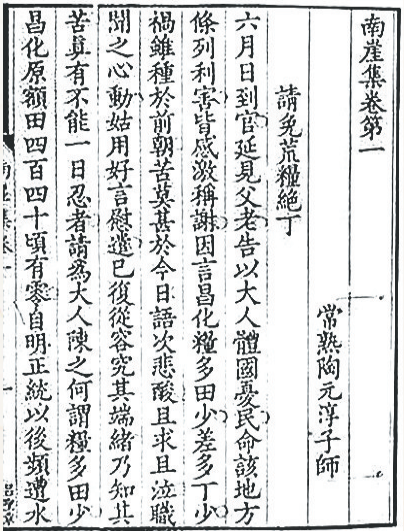 南崖集卷第一
常熟陶元淳子師
請免荒糧絕丁
六月日到官延見父老告以大人體國憂民命該地方
條列利害皆感激稱謝因言昌化糧多田少差多丁少
禍雖種於前朝苦莫甚於今日語次悲酸且求且泣職
聞之心動姑用好言慰遣已復從容究其端緒乃知其
苦眞有不能一日忍者請爲大人陳之何謂糧多田少
昌化原額田四百四十頃有零自明正統以後頻遭水